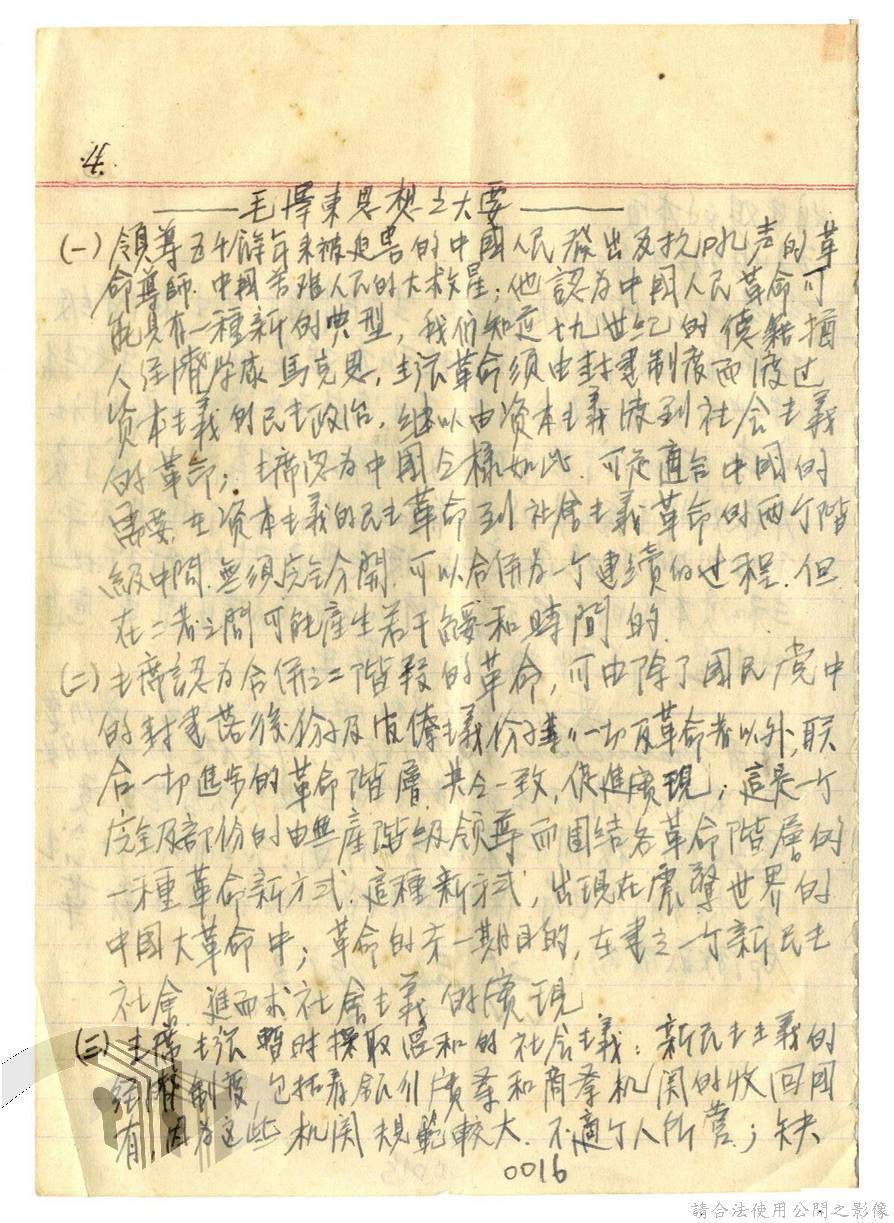 4.
毛澤東思想之大要
(一)領導五千餘年來被迫害的中國人民發出反抗吼声的革
命導師.中國苦难人民的大救星;他認为中國人民革命可
能具有一種新的典型,我们知道十九世紀的德籍猶
人经濟学家馬克思,主張革命须由封建制度而渡过
资本主義的民主政治,继以由资本主義渡到社会主義
的革命;主席認为中國仝樣如此.可是適合中國的
需要,在资本主義的民主革命到社會主義革命的两个階
級中間.無須完全分開.可以合併为一个連續的过程.但
在二者之間可能產生若干緩和時間的.
(二)主席認为合併之二階段的革命,可由除了國民党中
的封建落後份子及官僚主義份子 一切反革命者以外,联
合一切進步的革命階層,共仝一致,促進實現;這是一个
完全及部份的由無產階級领導而团结各革命階層的
一種革命新方式.這種新方式,出現在震驚世界的
中国大革命中;革命的第一期目的,在建立一个新民主
社會.進而求社會主義的實現
(三)主席主張暫时採取温和的社会主義:新民主主義的
经濟制度,包括着銀行實業和商業机関的收回国
有,因为这些机関規範較大.不適个人所營.;缺
0016
請合法使用公開之影像